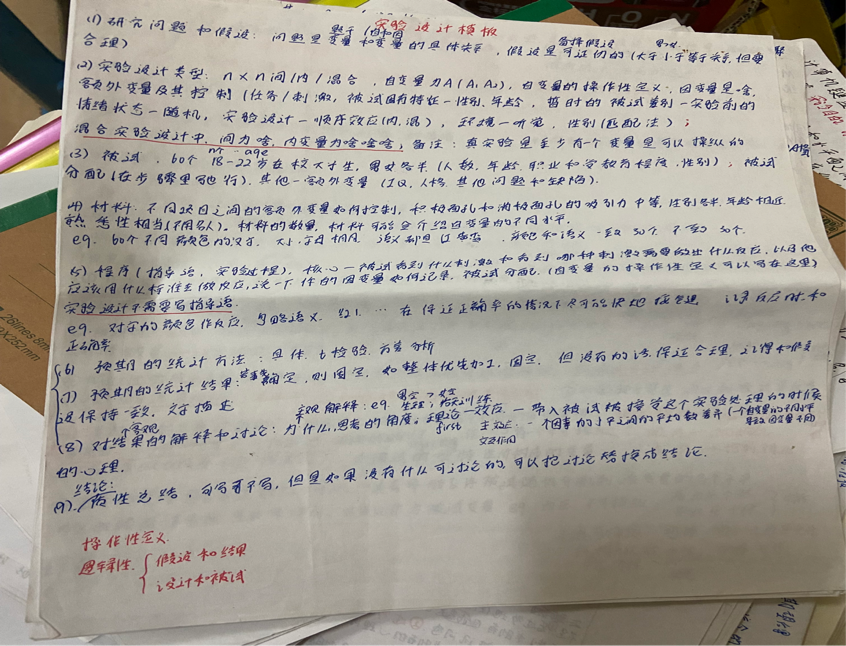 实验设计模板
(1) 研究问题和假设: 问题是变量和变量的具体关系, 假设是可证伪的(大于小于等于关系,但要
合理)
(2) 实验设计类型: n×n 间/内/混合, 自变量为A(A₁A₂), 自变量的操作性定义, 因变量是啥,
额外变量及其控制(任务/刺激, 被试固有特征—性别.年龄, 暂时的被试差别—实验前的
情绪状态—随机, 实验设计—顺序效应(内,混), 环境—听觉, 性别(匹配法);
混合实验设计中, 间为啥,内变量为啥啥啥, 备注: 真实验里至少有一个变量是可以操纵的
(3) 被试, 60个 18-22岁在校大学生, 男女各半(人数,年龄,职业和受教育程度,性别), 被试
分配(在步骤里写也行), 其他—额外变量 (IQ, 人格, 其他问题和缺陷).
(4) 材料: 不同项目之间的额外变量如何控制, 积极面孔和消极面孔的吸引力中等, 性别各半,年龄相近,
熟悉性相当(不用名人). 材料的数量, 材料可能会介绍自变量的不同水平.
eg. 60个不同颜色的汉字, 30个. 不一致 30个.
(5) 程序(指导语, 实验过程), 核心—被试看到什么刺激和看到哪种刺激需要做出什么反应, 以及他
应该用什么标准去做反应, 说一下你的因变量如何记录, 被试分配, (因变量的操作性定义可以写在这里)
实验设计不需要写指导语.
eg. 对字的颜色作反应, 忽略语义, 红1, … 在保证正确率的情况下尽可能快地按键, 记录反应时和
正确率
(6) 预期的统计方法: 具体. t检验. 方差分析
(7) 预期的统计结果: 确定, 则固定, 如整体优先加工, 固定, 但没有的话,保证合理, 记得和假
设保持一致, 文字描述
(8) 对结果的解释和讨论: 为什么, 思考的角度: 理论—效应, —带入被试被接受这个实验处理的时候
的心理.
first 主效应: 一个因素的水平之间的平均数差异
交互作用
结论:
(9). 性总结, 可写可不写, 但是如果没有什么可讨论的, 可以把讨论替换成结论.
操作性定义
逻辑性 { 假设和结果
设计和被试